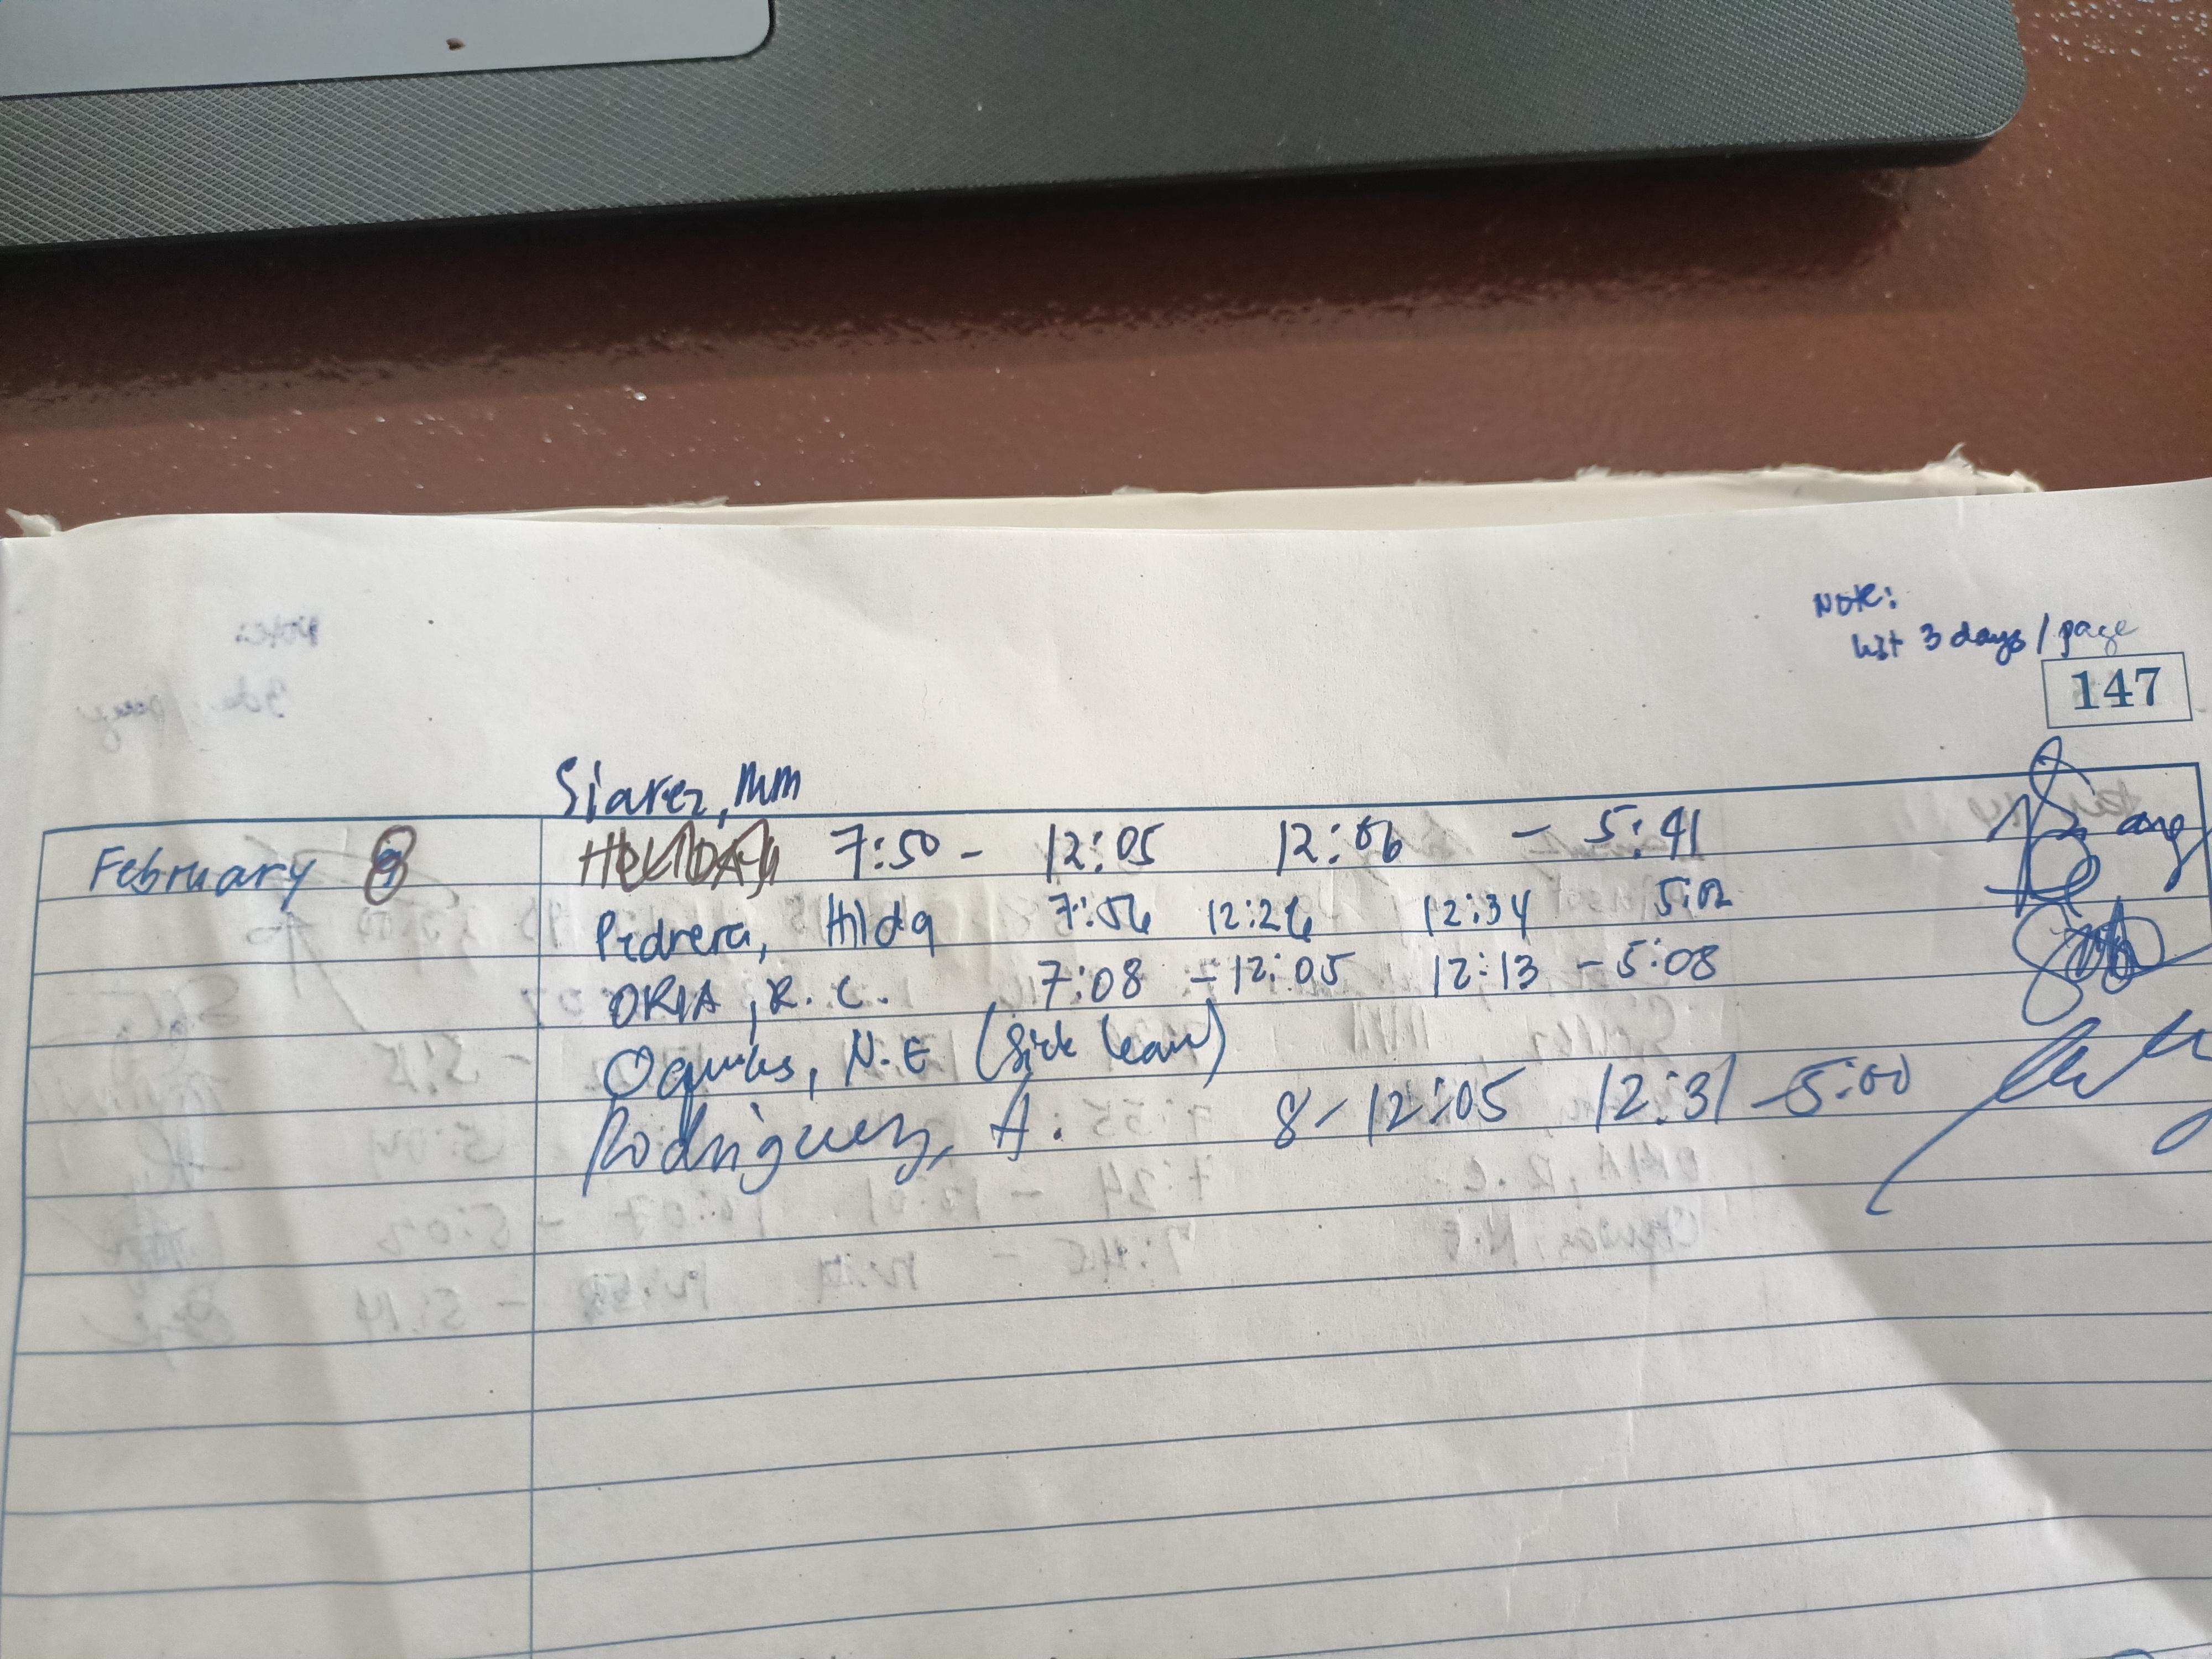 Note:
list 3 days / page
147
Siarez, MM
February 8 HOLIDAY 7:50 - 12:05 12:06 - 5:41
Pedrera, Hilda 7:56 12:26 12:34 5:02
ORIA, R. C. 7:08 - 12:05 12:13 - 5:08
N.E (Sick leave)
Rodriguez, A. 8 - 12:05 12:31 - 5:00